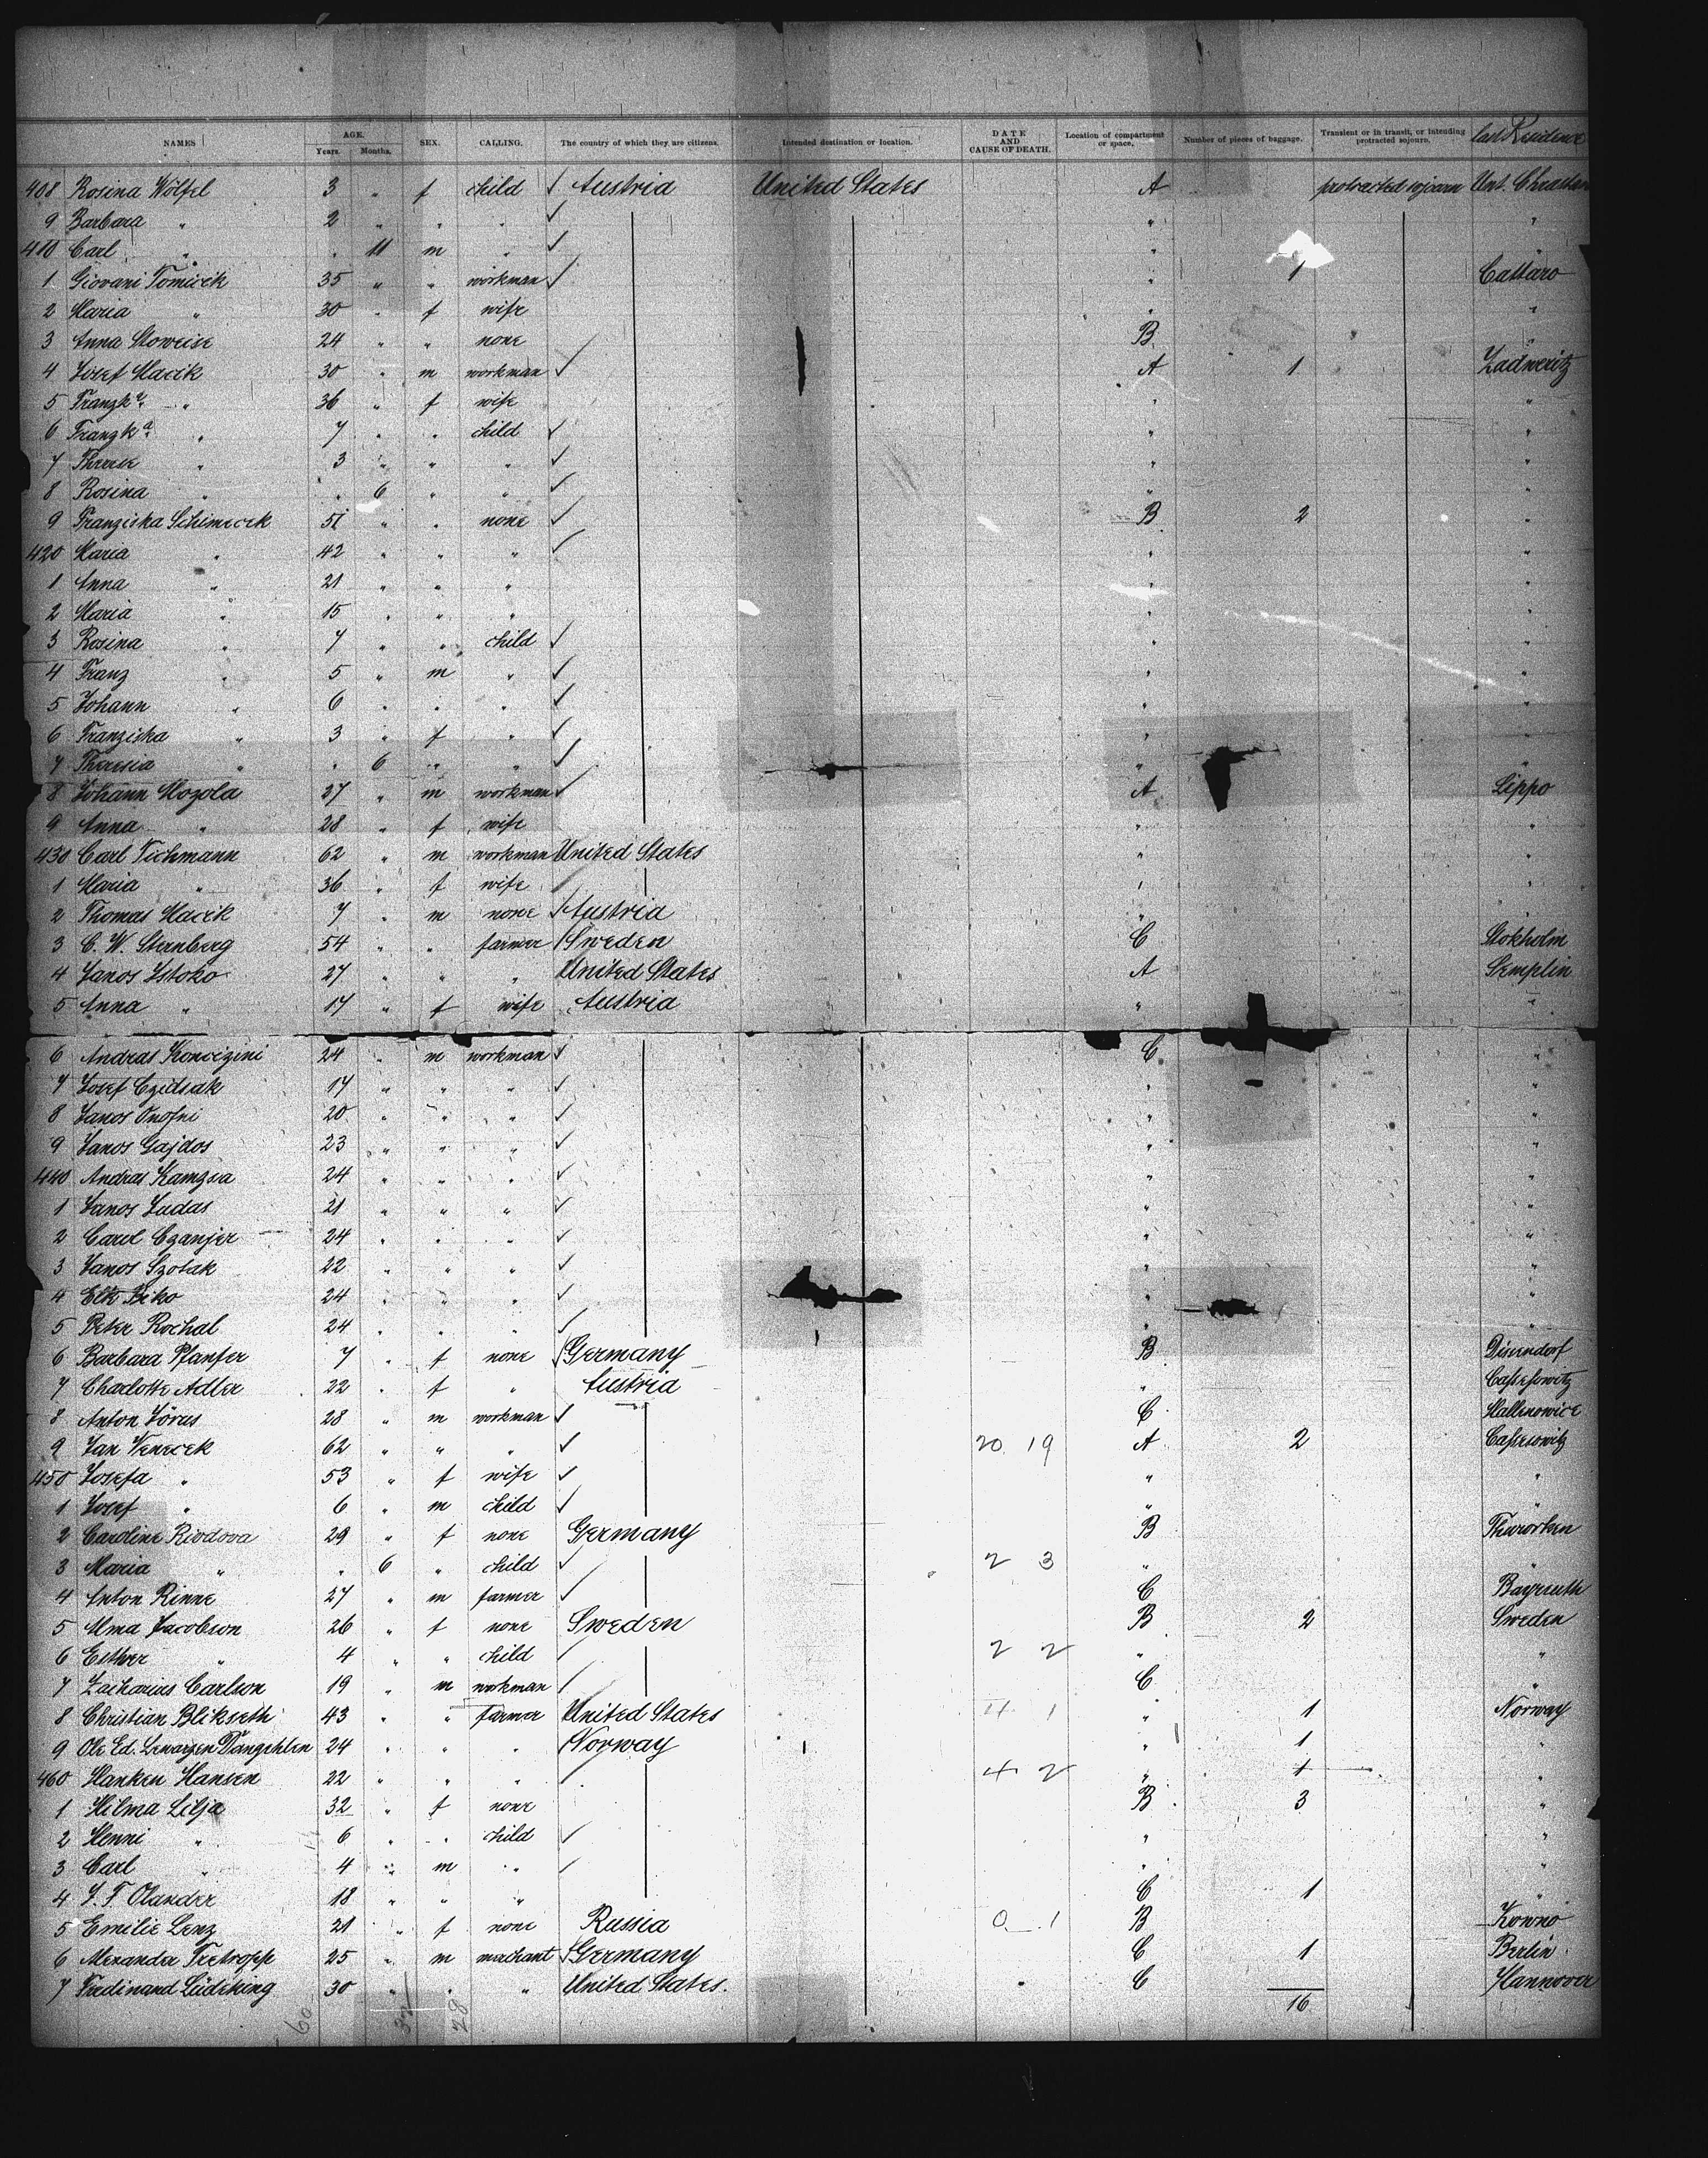 NAMES AGE. Years. Months. SEX. CALLING. The country of which they are citizens. Intended destination or location. DATE AND CAUSE OF DEATH. Location of compartment or space. Number of pieces of baggage. Transient or in transit, or intending protracted sojourn. Last Residence
408 Rosina Wölfel 3 " f child Austria United States A protracted sojourn Unt.
9 Barbara " 2 " " " " "
410 Carl " " 11 m " " "
1 Giovani Tomicik 35 " " workman " 1 Cattaro
2 Maria " 30 " f wife " "
3 Anna Stoweise 24 " " none B "
4 Josef Macik 30 " m workman A 1 Zadweritz
5 Franzka " 36 " f wife " "
6 Franzka " 7 " " child " "
7 " 3 " " " " "
8 Rosina " " 6 " " " "
9 Franziska Schimecek 51 " " none B 2 "
420 Maria " 42 " " " " "
1 Anna " 21 " " " " "
2 Maria " 15 " " " " "
3 Rosina " 7 " " child " "
4 Franz " 5 " m " " "
5 Johann " 6 " " " " "
6 Franziska " 3 " f " " "
7 Theresia " " 6 " " " "
8 Johann Mozola 27 " m workman A Lippo
9 Anna " 28 " f wife " "
430 Carl Tichmann 62 " m workman United States " "
1 Maria " 36 " f wife " "
2 Thomas Macik 7 " m none Austria " "
3 C. W. Sternberg 54 " " farmer Sweden C Stokholm
4 Janos Istoko 27 " " " United States A Semplin
5 Anna " 17 " f wife Austria " "
6 Andras Koncizini 24 " m workman C "
7 Josef Czidsak 17 " " " " "
8 Janos Onofni 20 " " " " "
9 Janos Gajdos 23 " " " " "
440 Andras Kamzsa 24 " " " " "
1 Janos Judas 21 " " " " "
2 Carol Czanjer 24 " " " " "
3 Janos Szotak 22 " " " " "
4 24 " " " " "
5 Peter Rochal 24 " " " " "
6 Barbara Pfanfer 7 " f none Germany B Disendorf
7 Charlotte Adler 22 " f " Austria "
8 Anton 28 " m workman C Mallenowice
9 Jan Venecek 62 " " " 20 19 A 2
450 Josefa " 53 " f wife " "
1 Josef " 6 " m child " "
2 Caroline Rivdova 29 " f none Germany B
3 Maria " " 6 " child 2 3 " "
4 Anton Rinne 27 " m farmer C Bayreuth
5 Alma Jacobson 26 " f none Sweden B 2 Sweden
6 Esther " 4 " " child 2 2 " "
7 Zacharias Carlson 19 " m workman C "
8 Christian Blikseth 43 " " farmer United States 4 1 " 1 Norway
9 Ole Ed. 24 " " " Norway " 1 "
460 Hanken Hansen 22 " " " 4 2 " 1 "
1 Hilma Lilja 32 " f none B 3 "
2 Henni " 6 " " child " "
3 Carl " 4 " m " " "
4 J. F. Olander 18 " " " C 1 "
5 Emilie Lenz 21 " f none Russia 0 1 B Kowno
6 25 " m merchant Germany C 1 Berlin
7 Ferdinand Lüdeking 30 " " " United States. C Hannover
16
60 32 28